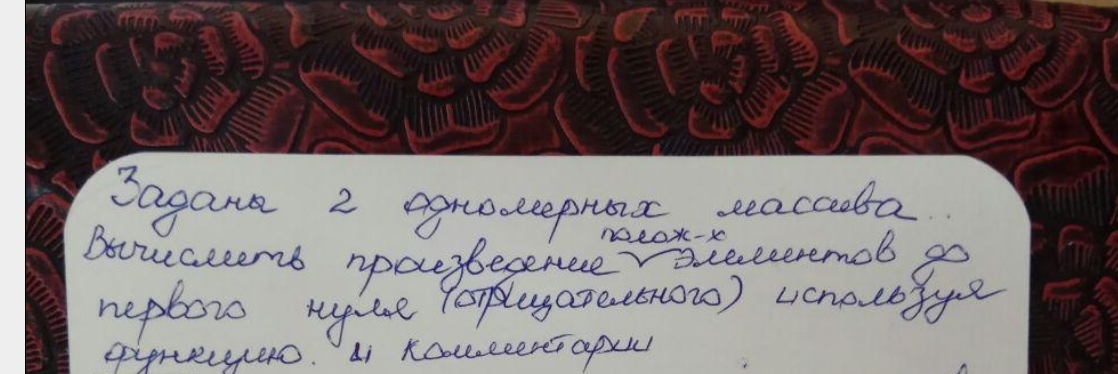 Заданы 2 одномерных массива..
Вычислить произведение полож-х элементов до
первого нуля (отрицательного) используя
функцию. и комментарии